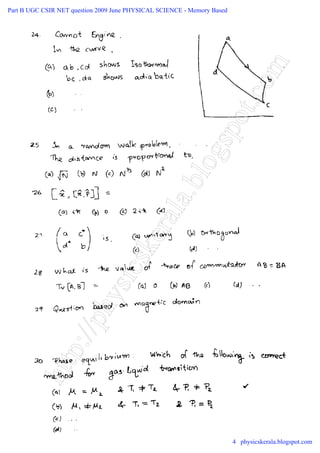 Part B UGC CSIR NET question 2009 June PHYSICAL SCIENCE - Memory Based
24. Cannot Engine.
In the curve,
(a) ab, cd shows Isothermal
bc, da shows adiabatic
(b) ..
(c) ..
a
b
c
d
25 In a random walk problem,
The distance is proportional to,
(a) √N (b) N (c) N^(2/3) (d) N²
26 [x̂, [x̂, p̂]] =
(a) iħ (b) 0 (c) 2iħ (d)
27 (a c* d* b) is, (a) unitary (b) orthogonal
(c) (d) ..
28 What is the value of trace of commutator AB = BA
Tr [A, B] = (a) 0 (b) AB (c) (d) ..
29 Question based on magnetic domain
30 Phase equilibrium: Which of the following is correct
method for gas-liquid transition
(a) μ₁ = μ₂ & T₁ ≠ T₂ & P₁ ≠ P₂ ✓
(b) μ₁ ≠ μ₂ & T₁ = T₂ & P₁ = P₂
(c) ..
(d) ..
http://physicskerala.blogspot.com
4 physicskerala.blogspot.com